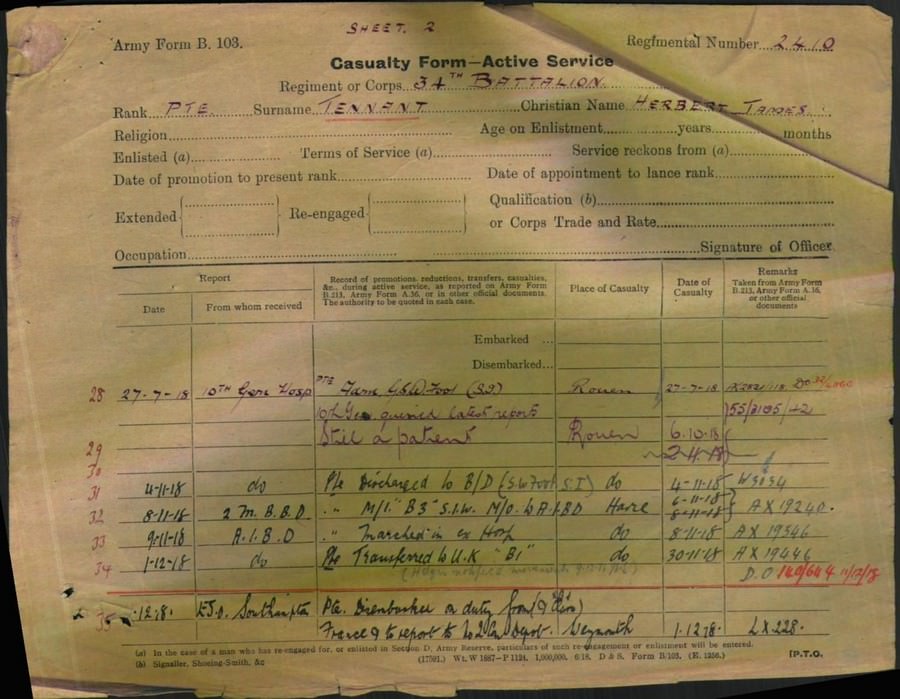 SHEET. 2
Army Form B. 103.
Regimental Number 2410
Casualty Form—Active Service
Regiment or Corps 34TH BATTALION
Rank PTE Surname TENNANT Christian Name HERBERT JAMES.
Religion Age on Enlistment years months
Enlisted (a) Terms of Service (a) Service reckons from (a)
Date of promotion to present rank Date of appointment to lance rank
Extended Re-engaged Qualification (b)
or Corps Trade and Rate
Occupation Signature of Officer
Report Record of promotions, reductions, transfers, casualties, &c., during active service, as reported on Army Form B.213, Army Form A.36, or in other official documents. The authority to be quoted in each case. Place of Casualty Date of Casualty Remarks Taken from Army Form B.213, Army Form A.36, or other official documents
Date From whom received
Embarked ...
Disembarked...
28 27-7-18 10TH Gen Hosp PTE G.S.W. Foot (S.I.) Rouen 27-7-18
10th Gen queried latest reports 55/3105/42
29 Still a patient Rouen 6.10.18
2-11-18
30
31 4-11-18 do Pte Discharged to B/D do 4-11-18 W3034
32 8-11-18 M/I. "B3" S.I.W. Havre 6-11-18 8-11-18 AX 19240.
33 9-11-18 A.I.B.D " Marched in ex Hosp do 8-11-18 AX 19346
34 1-12-18 do Pte Transferred to U.K "B1" do 30-11-18 AX 19446
D.O 140/644 11/12/18
35 Southampton Pte. on duty from
France & to report to No 2 Com Depot. Weymouth 1.12.18. LX 228.
(a) In the case of a man who has re-engaged for, or enlisted in Section D, Army Reserve, particulars of such re-engagement or enlistment will be entered.
(b) Signaller, Shoeing-Smith, &c (17591.) Wt. W 1887—P 1124. 1,000,000. 6/18. D & S. Form B/103. (E. 1256.) [P.T.O.